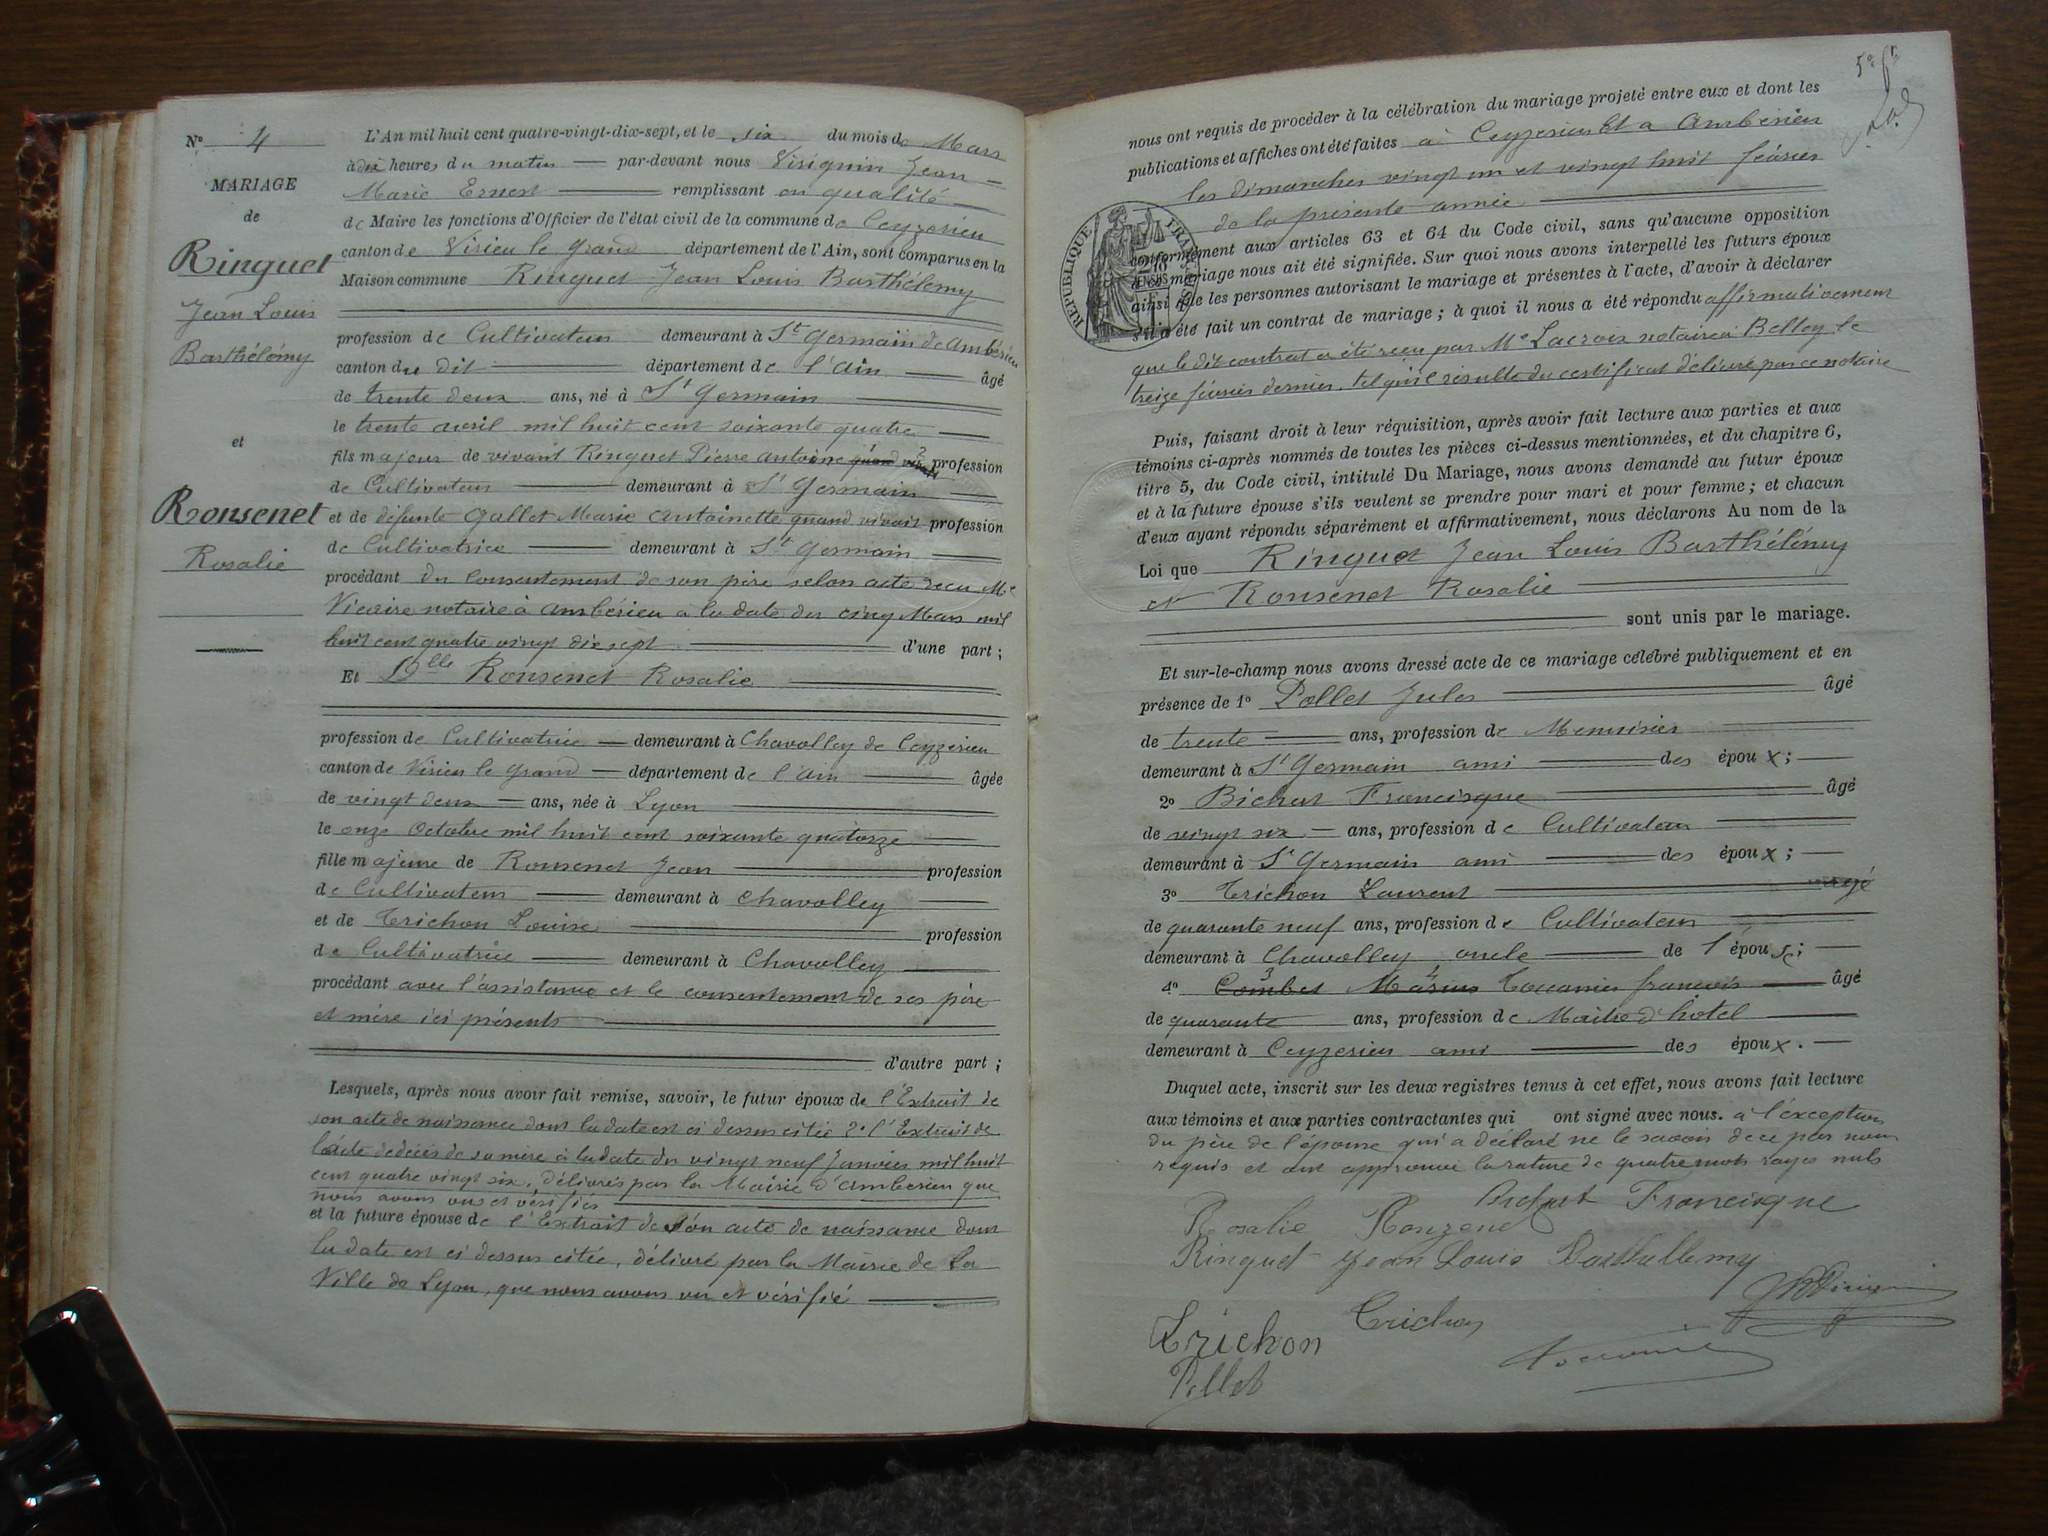 Nº 4
MARIAGE
de
Ringuet
Jean Louis
Barthélémy
et
Ronsenet
Rosalie
L'An mil huit cent quatre-vingt-dix-sept, et le six du mois de Mars
à dix heures du matin — par-devant nous Visignin Jean
Marie Ernest — remplissant en qualité
de Maire les fonctions d'Officier de l'état civil de la commune de Ceyzerieu
canton de Virieu le Grand département de l'Ain, sont comparus en la
Maison commune Ringuet Jean Louis Barthélemy
profession de Cultivateur demeurant à St Germain de Ambérieu
canton du dit — département de l'Ain — âgé
de trente deux ans, né à St Germain
le trente avril mil huit cent soixante quatre
fils majeur de vivant Ringuet Pierre Antoine quand profession
de Cultivateur — demeurant à St Germain
et de défunte Gallet Marie Antoinette quand vivait profession
de Cultivatrice — demeurant à St Germain
procédant du Consentement de son père selon acte recu Me
Vicaire notaire à Ambérieu à la date du cinq Mars mil
huit cent quatre vingt dix sept — d'une part ;
Et Dlle Ronsenet Rosalie
profession de Cultivatrice — demeurant à Chavolley de Ceyzerieu
canton de Virieu le Grand — département de l'Ain — âgée
de vingt deux — ans, née à Lyon
le onze Octobre mil huit cent soixante quatorze
fille majeure de Ronsenet Jean profession
de Cultivateur — demeurant à Chavolley
et de Trichon Louise profession
de Cultivatrice — demeurant à Chavolley
procédant avec l'assistance et le consentement de ses père
et mère ici présents
d'autre part ;
Lesquels, après nous avoir fait remise, savoir, le futur époux de l'Extrait de
son acte de naissance dont la date est ci dessus citée 2º l'Extrait de
l'acte de décés de sa mère à la date du vingt neuf Janvier mil huit
cent quatre vingt six, délivrés par la Mairie d'Ambérieu que
nous avons vus et vérifiés
et la future épouse de l'Extrait de son acte de naissance dont
la date est ci dessus citée, délivré par la Mairie de la
Ville de Lyon, que nous avons vu et vérifié
nous ont requis de procéder à la célébration du mariage projeté entre eux et dont les
publications et affiches ont été faites à Ceyzerieu Et a Ambérieu
les dimanches vingt un et vingt huit février
de la présente année
RÉPUBLIQUE FRANÇAISE
conformément aux articles 63 et 64 du Code civil, sans qu'aucune opposition
à ce mariage nous ait été signifiée. Sur quoi nous avons interpellé les futurs époux
ainsi que les personnes autorisant le mariage et présentes à l'acte, d'avoir à déclarer
s'il a été fait un contrat de mariage ; à quoi il nous a été répondu affirmativement
que le dit contrat a été recu par Me Lacroix notaire à Belley le
treize février dernier, tel qu'il résulte du certificat délivré par ce notaire
Puis, faisant droit à leur réquisition, après avoir fait lecture aux parties et aux
témoins ci-après nommés de toutes les pièces ci-dessus mentionnées, et du chapitre 6,
titre 5, du Code civil, intitulé Du Mariage, nous avons demandé au futur époux
et à la future épouse s'ils veulent se prendre pour mari et pour femme ; et chacun
d'eux ayant répondu séparément et affirmativement, nous déclarons Au nom de la
Loi que Ringuet Jean Louis Barthélémy
et Ronsenet Rosalie
sont unis par le mariage.
Et sur-le-champ nous avons dressé acte de ce mariage célébré publiquement et en
présence de 1º Pellet Jules âgé
de trente — ans, profession de Menuisier
demeurant à St Germain ami — des époux ; —
2º Bichat Francisque âgé
de vingt six — ans, profession de Cultivateur
demeurant à St Germain ami — des époux ; —
3º Trichon Laurent âgé
de quarante neuf ans, profession de Cultivateur
demeurant à Chavolley oncle — de l'épouse ; —
4º Combet Marius français — âgé
de quarante ans, profession de Maître d'hôtel
demeurant à Ceyzerieu ami — des époux. —
Duquel acte, inscrit sur les deux registres tenus à cet effet, nous avons fait lecture
aux témoins et aux parties contractantes qui ont signé avec nous. à l'exception
du père de l'épouse qui a déclaré ne le savoir de ce par nous
requis et ont approuvé la rature de quatre mots rayés nuls
Bichat Francisque
Rosalie Rouzenet
Ringuet Jean Louis Barthellemy
Trichon
Trichon
Pellet